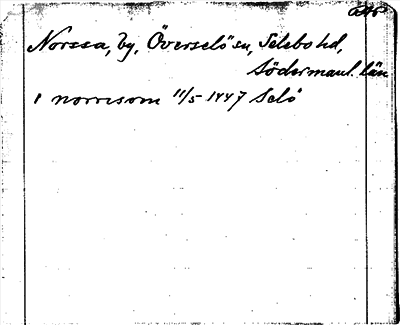 Norssa, by, Överselö sn, Selebo hd,
Södermanl. län
i norresom 11/5 1447 Selö